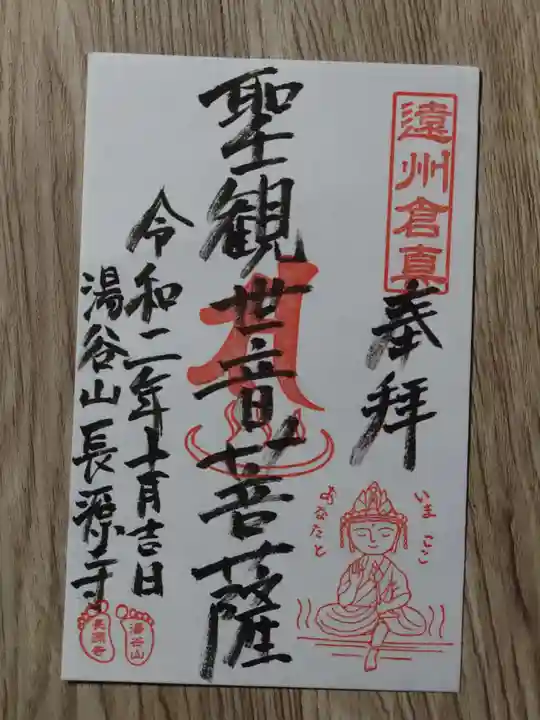 遠州倉真
奉拝
いまここ
あなたと
聖観世音菩薩
令和二年十月吉日
湯谷山長源寺
湯谷山
長源寺